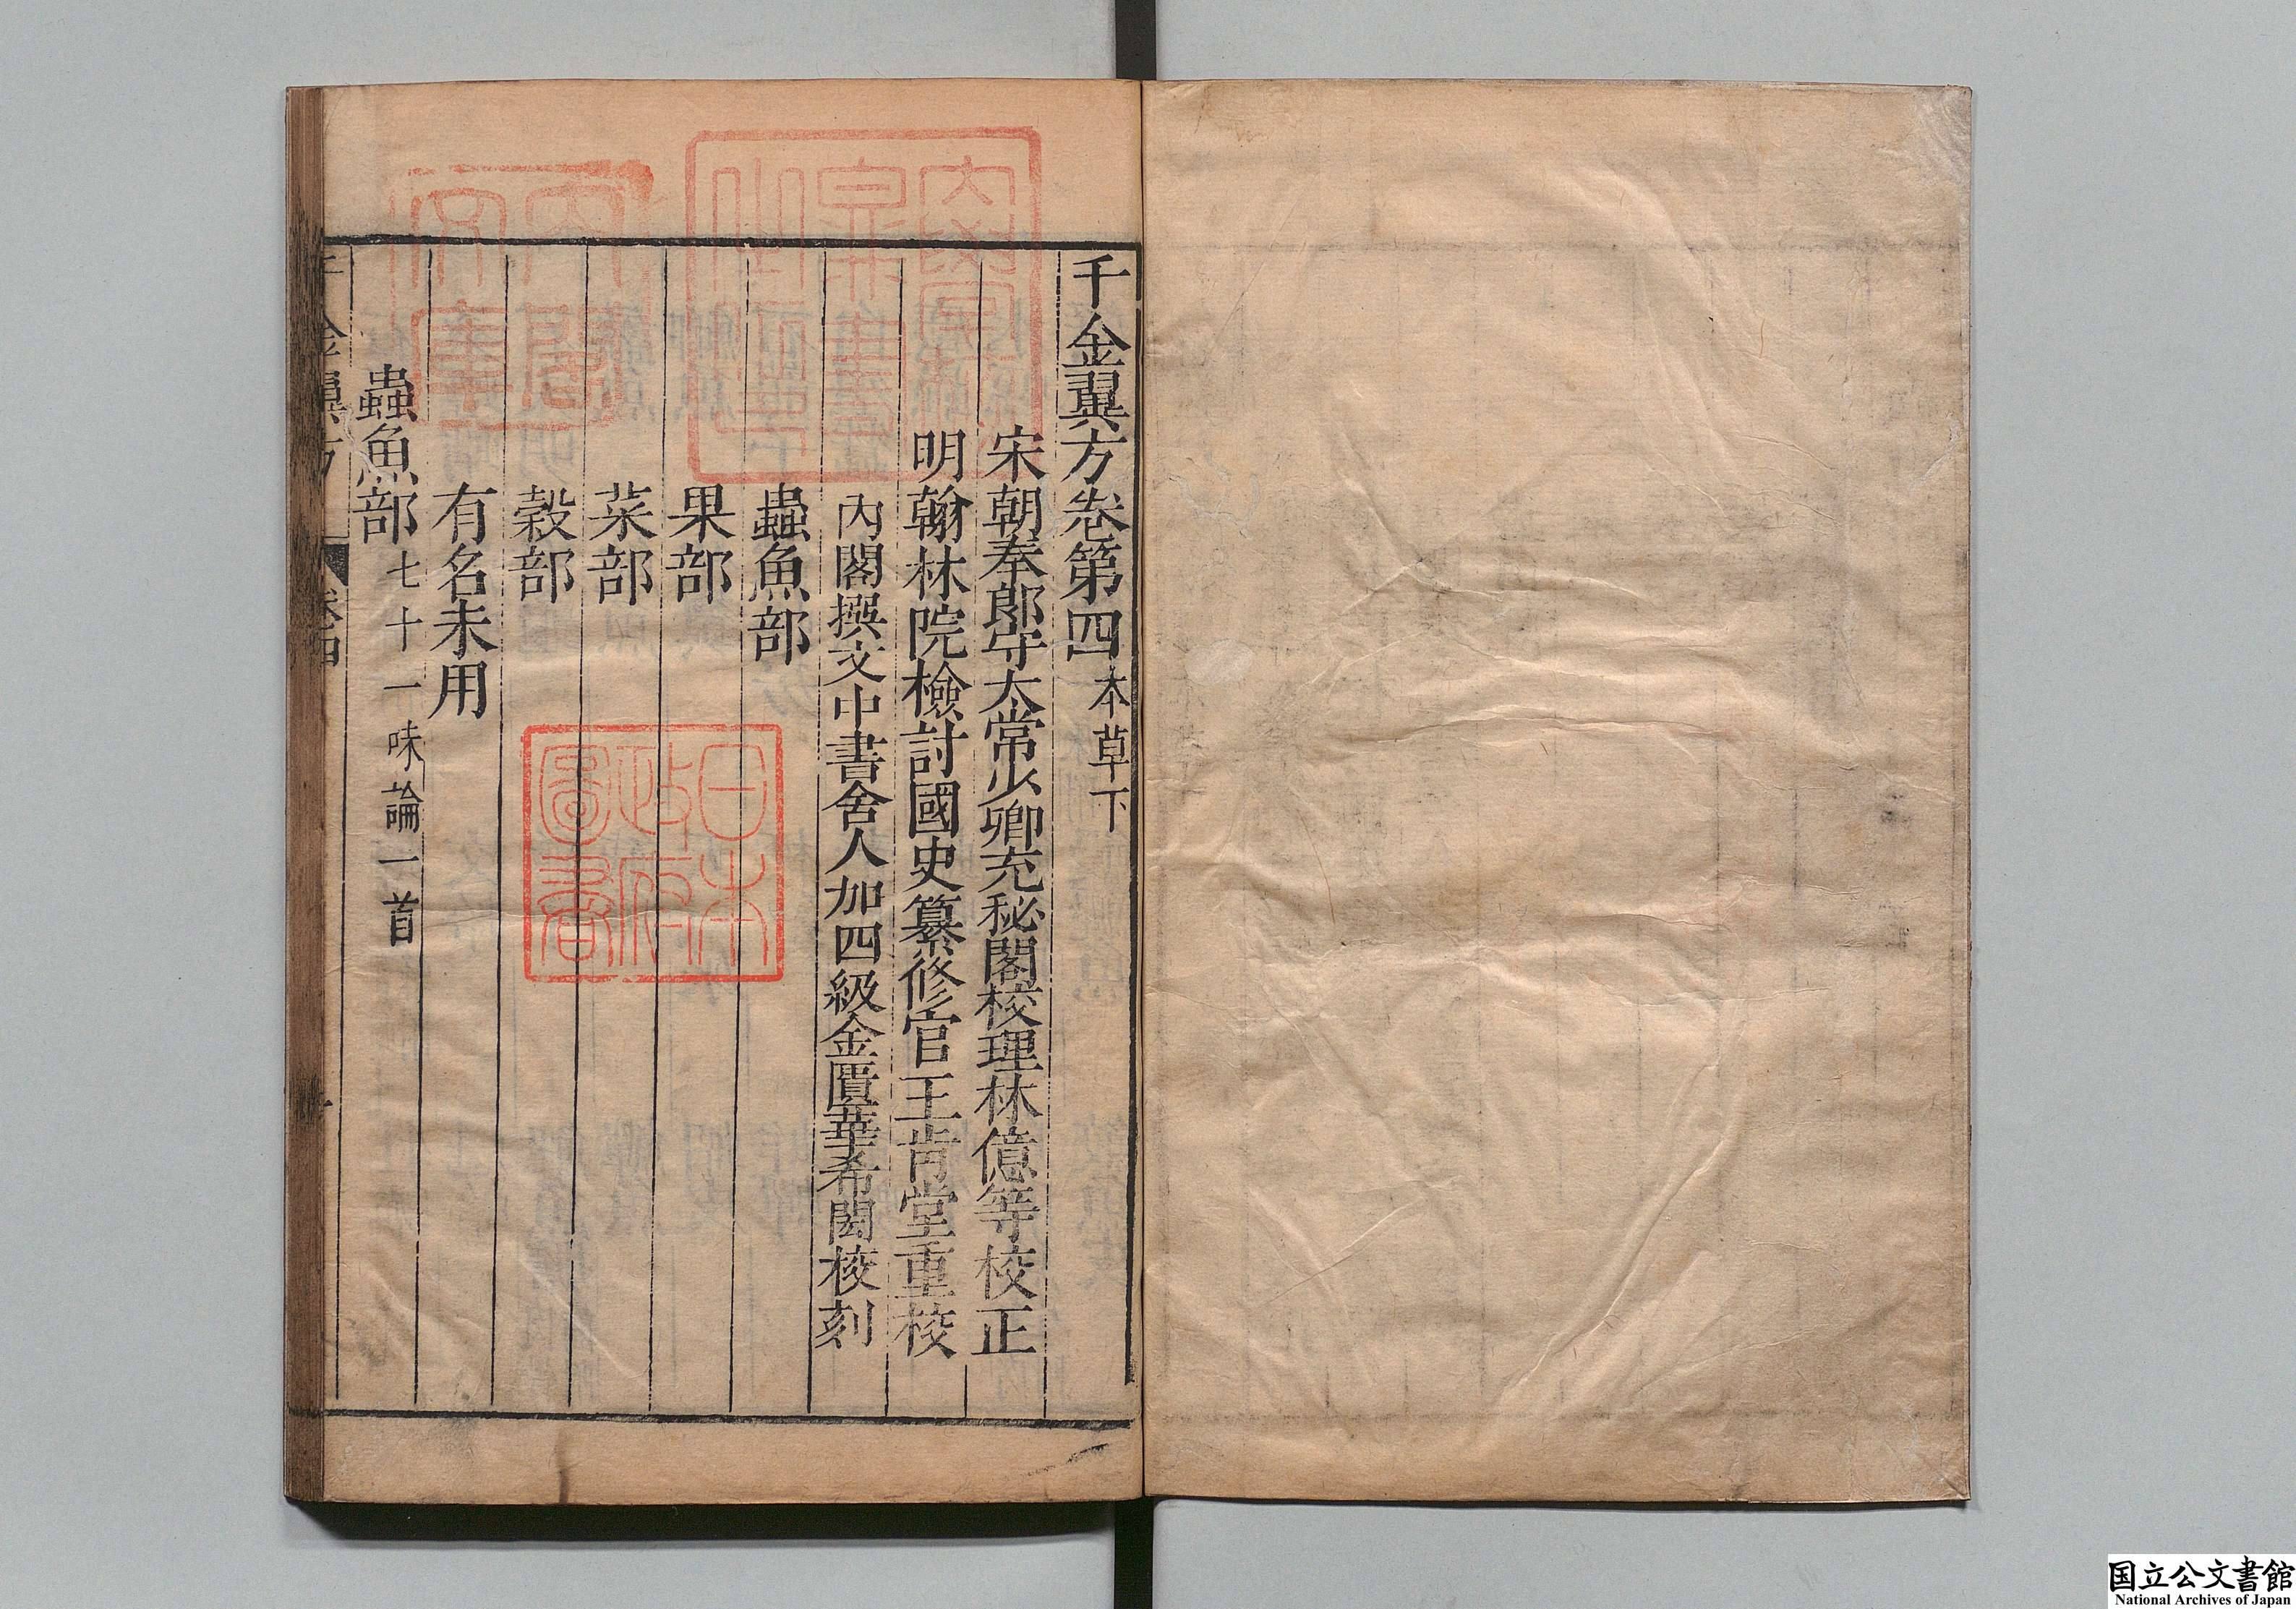 千金翼方卷第四 本草下
宋朝奉郎守太常少卿充秘閣校理林億等校正
明翰林院檢討國史纂修官王肯堂重校
內閣撰文中書舍人加四級金匱華希閎校刻
蟲魚部
果部
菜部
穀部
有名未用
蟲魚部 七十一味 論一首
千金翼方 卷四 一
日本
政府
圖書
国立公文書館
National Archives of Japan